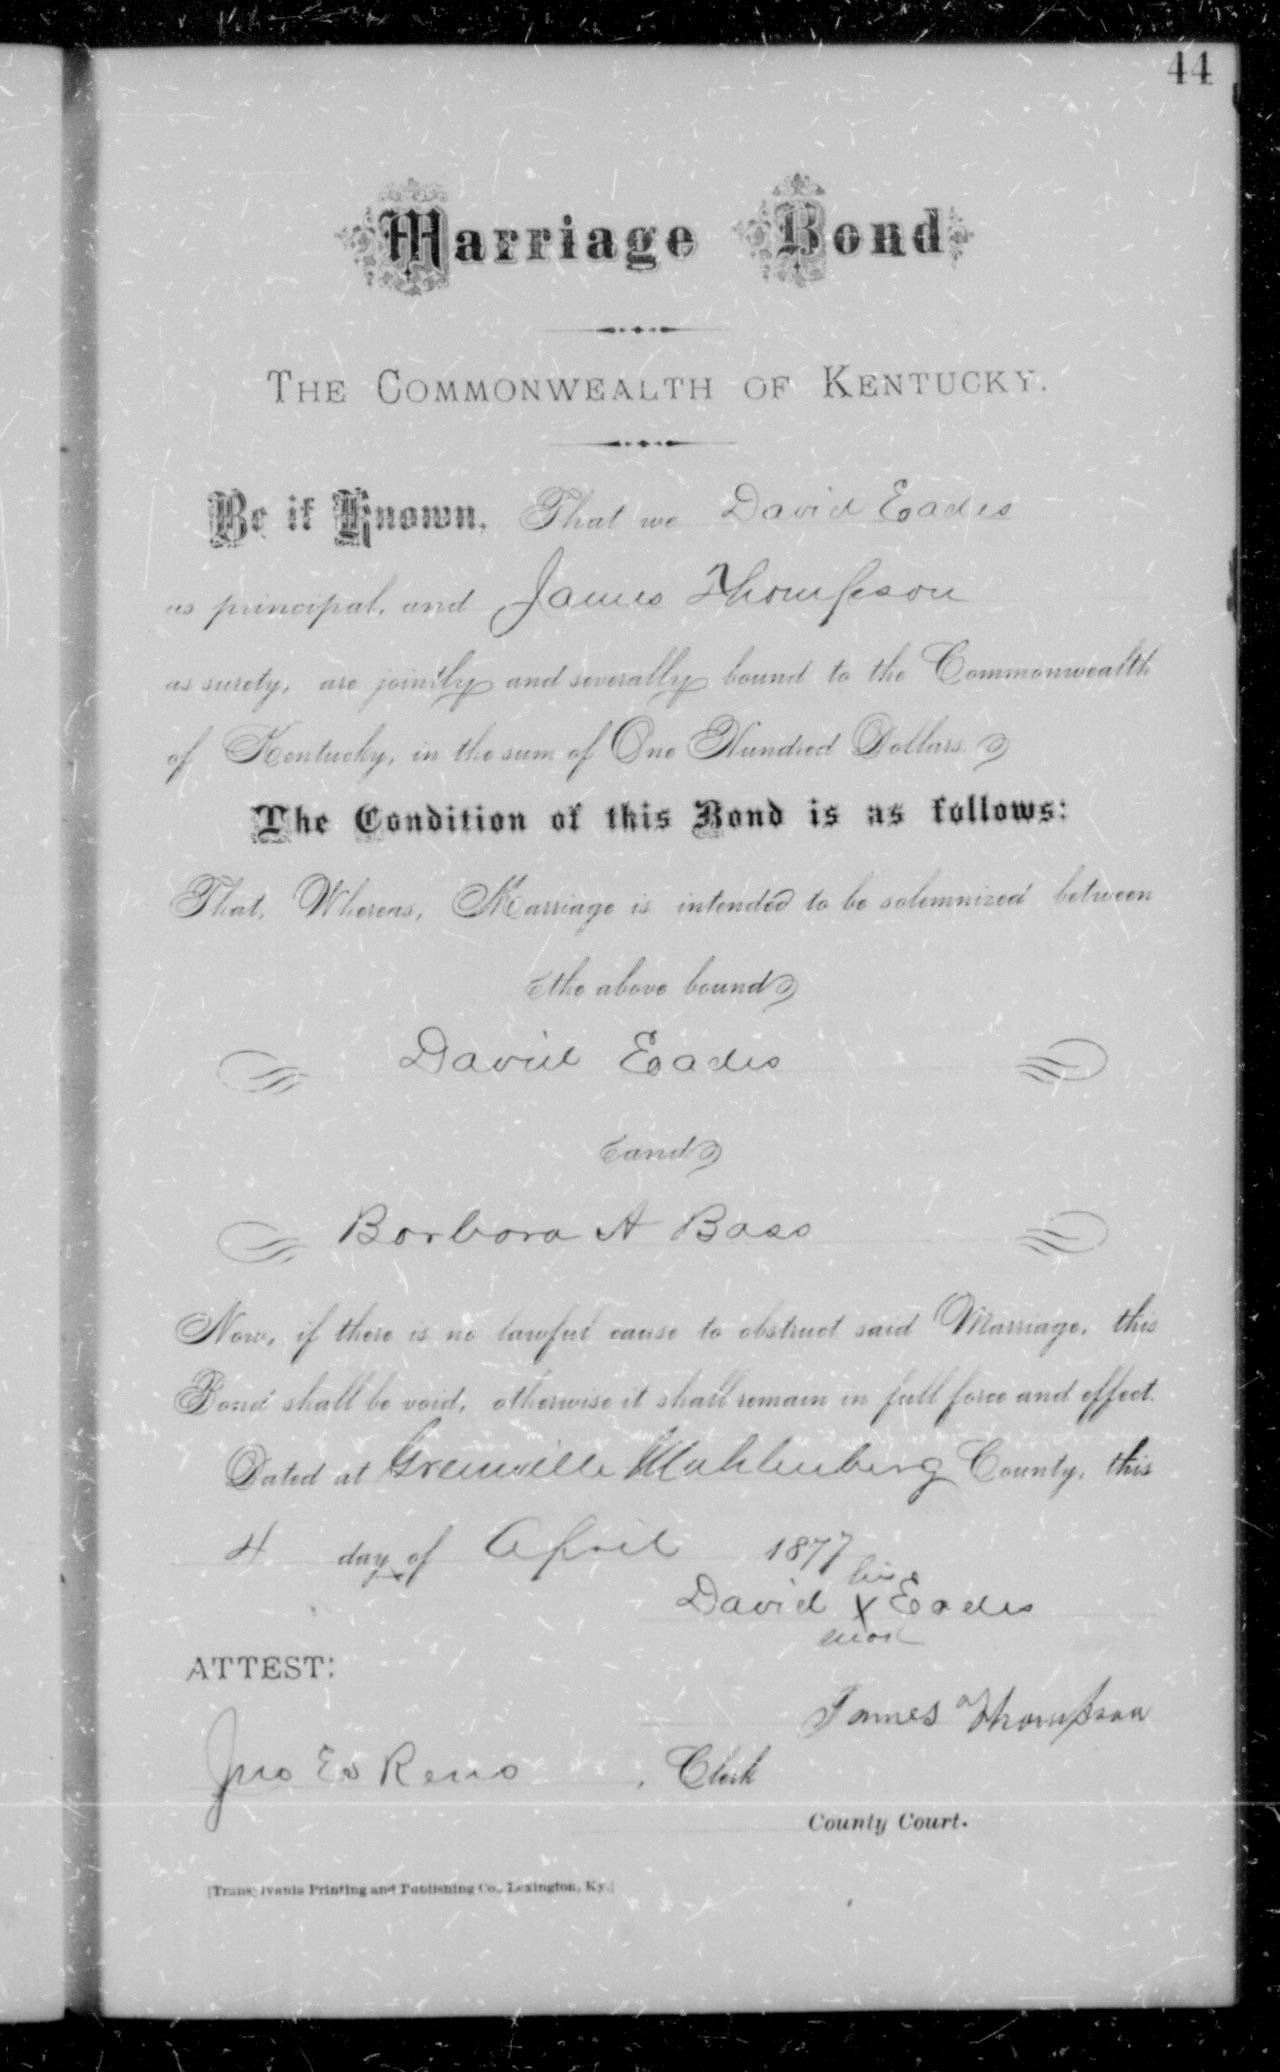 44
Marriage Bond
THE COMMONWEALTH OF KENTUCKY.
Be it Known, That we David Eades
as principal, and James Thompson
as surety, are jointly and severally bound to the Commonwealth
of Kentucky, in the sum of One Hundred Dollars.
The Condition of this Bond is as follows:
That, Whereas, Marriage is intended to be solemnized between
the above bound
David Eades
and
Barbara A Bass
Now, if there is no lawful cause to obstruct said Marriage, this
Bond shall be void, otherwise it shall remain in full force and effect.
Dated at Greenville Muhlenberg County, this
4 day of April 1877
his
David X Eades
mark
ATTEST:
James Thompson
Jno Ed Reno, Clerk
County Court.
[Transylvania Printing and Publishing Co., Lexington, Ky.]